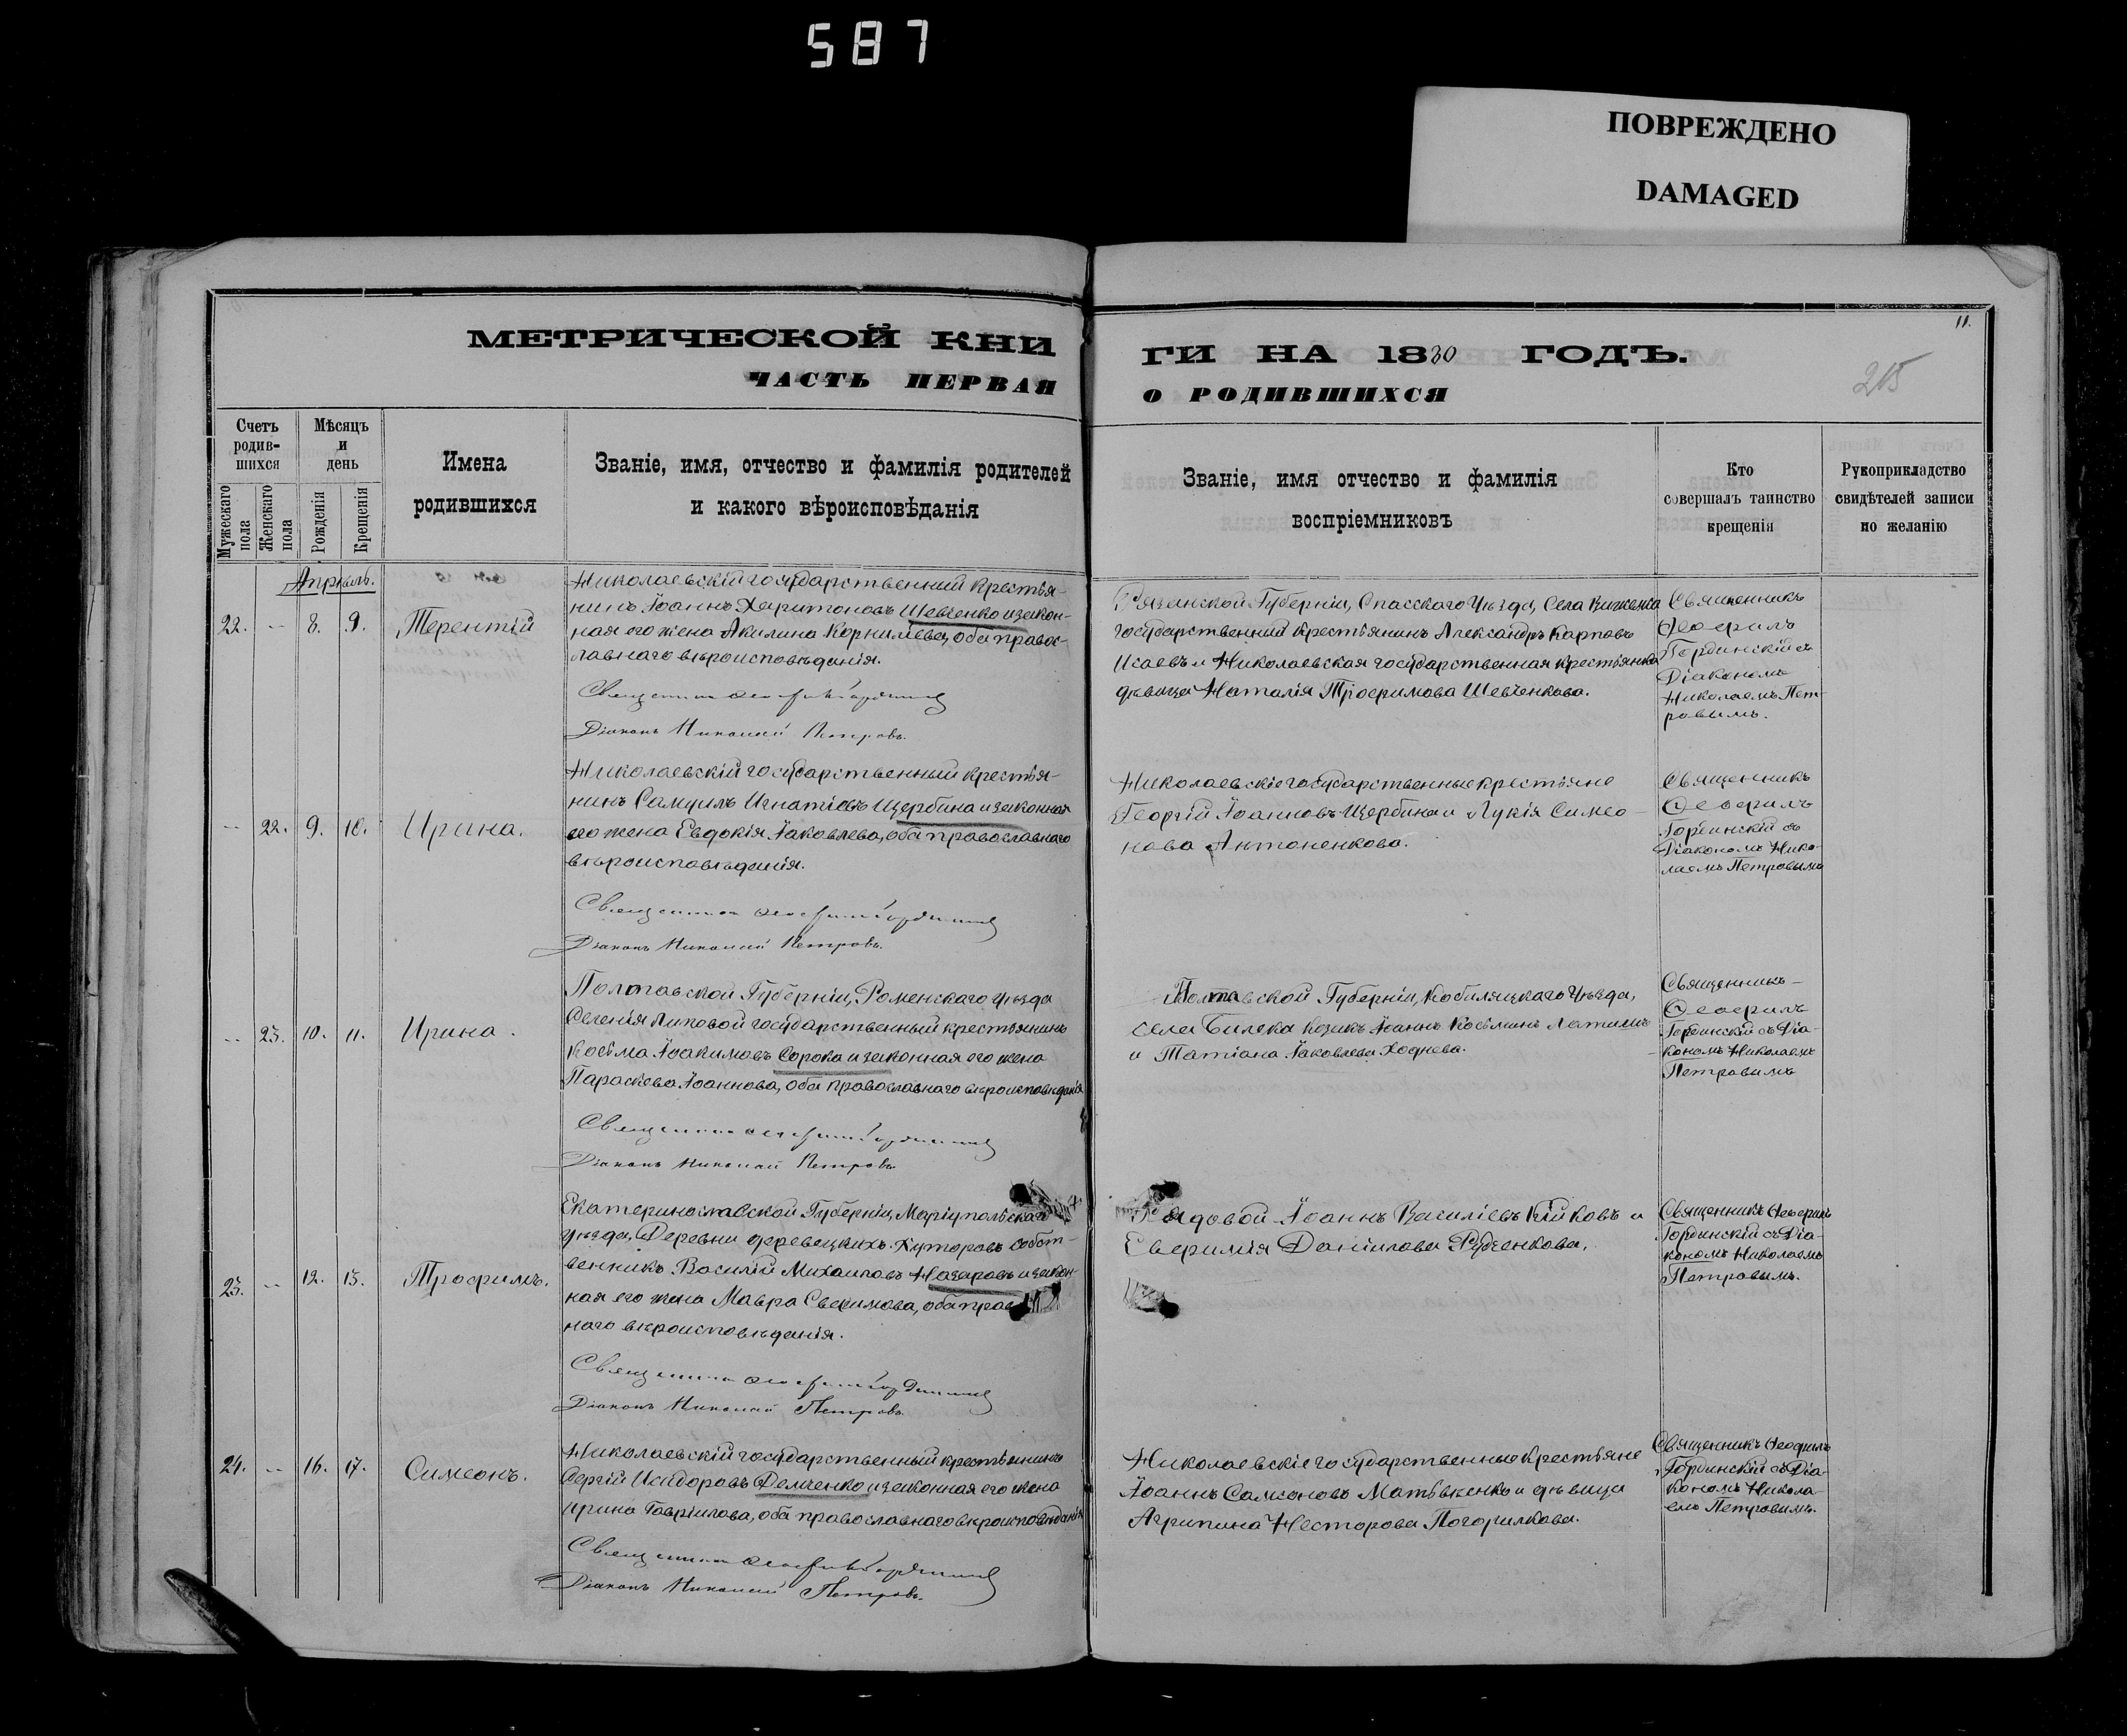 587
ПОВРЕЖДЕНО
DAMAGED
МЕТРИЧЕСКОЙ КНИ
ЧАСТЬ ПЕРВАЯ
ГИ НА 1880 ГОДЪ.
О РОДИВШИХСЯ
11.
215
Счетъ родив-шихся
Мужескаго пола
Женскаго пола
Мѣсяцъ и день
Рожденія
Крещенія
Имена родившихся
Званіе, имя, отчество и фамилія родителей
и какого вѣроисповѣданія
Званіе, имя отчество и фамилія
воспріемниковъ
Кто
совершалъ таинство
крещенія
Рукоприкладство
свидѣтелей записи
по желанію
Апрѣль.
22. -- 8. 9. Терентій
Николаевскій государственный крестья-
нинъ Іоаннъ Харитоновъ Шевченко и закон-
ная его жена Акилина Корниліева, оба правос-
лавнаго вѣроисповѣданія.
Священникъ Ѳеофилъ Гординскій
Діаконъ Николай Петровъ.
Рязанской Губерніи, Спасскаго Уѣзда, Села
государственный крестьянинъ Александръ Карповъ
Исаевъ и Николаевская государственная крестьянка
дѣвица Наталія Трофимова Шевченкова.
Священникъ
Ѳеофилъ
Гординскій съ
Діакономъ
Николаемъ Пет-
ровымъ.
-- 22. 9. 10. Ирина.
Николаевскій государственный крестья-
нинъ Самуилъ Игнатіевъ Щербина и законная
его жена Евдокія Іаковлева, оба православнаго
вѣроисповѣданія.
Священникъ Ѳеофилъ Гординскій
Діаконъ Николай Петровъ.
Николаевскіе государственные крестьяне
Георгій Іоанновъ Щербина и Лукія Симео-
нова Антоненкова.
Священникъ
Ѳеофилъ
Гординскій съ
Діакономъ Нико-
лаемъ Петровымъ
-- 23. 10. 11. Ирина.
Полтавской Губерніи, Роменскаго Уѣзда
Селенія Липовой государственный крестьянинъ
Косьма Іоакимовъ Сорока и законная его жена
Параскева Іоаннова, оба православнаго вѣроисповѣданія
Священникъ Ѳеофилъ Гординскій
Діаконъ Николай Петровъ
Полтавской Губерніи, Кобиляцкаго Уѣзда,
села Козакъ Іоаннъ Косьминъ
и Татіана Іаковлева Ходнева.
Священникъ-
Ѳеофилъ
Гординскій съ Діа-
кономъ Николаемъ
Петровымъ
23. -- 12. 13. Трофимъ.
Екатеринославской Губерніи, Маріупольскаго
уѣзда, Деревни Хуторовъ собст-
венникъ Василій Михаиловъ Назаровъ и закон-
ная его жена Мавра оба прав
наго вѣроисповѣданія.
Священникъ Ѳеофилъ Гординскій
Діаконъ Николай Петровъ.
Рядовой Іоаннъ Василіевъ и
Евфимія Даніилова Рудченкова.
Священникъ Ѳеофилъ
Гординскій съ Діа-
кономъ Николаемъ
Петровымъ.
24. -- 16. 17. Симеонъ.
Николаевскій государственный крестьянинъ
Сергій Исидоровъ Демченко и законная его жена
Ирина Гавріилова, оба православнаго вѣроисповѣданія
Священникъ Ѳеофилъ Гординскій
Діаконъ Николай Петровъ.
Николаевскіе государственные крестьяне
Іоаннъ Самсоновъ Матвѣенко и дѣвица
Агрипина Несторова Погорилкова.
Священникъ Ѳеофилъ
Гординскій съ Діа-
кономъ Никола-
емъ Петровымъ.